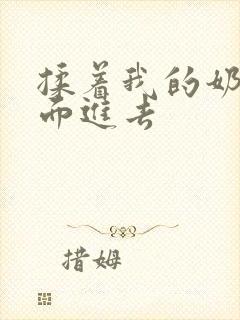 揉着我的奶
而進去
措姆